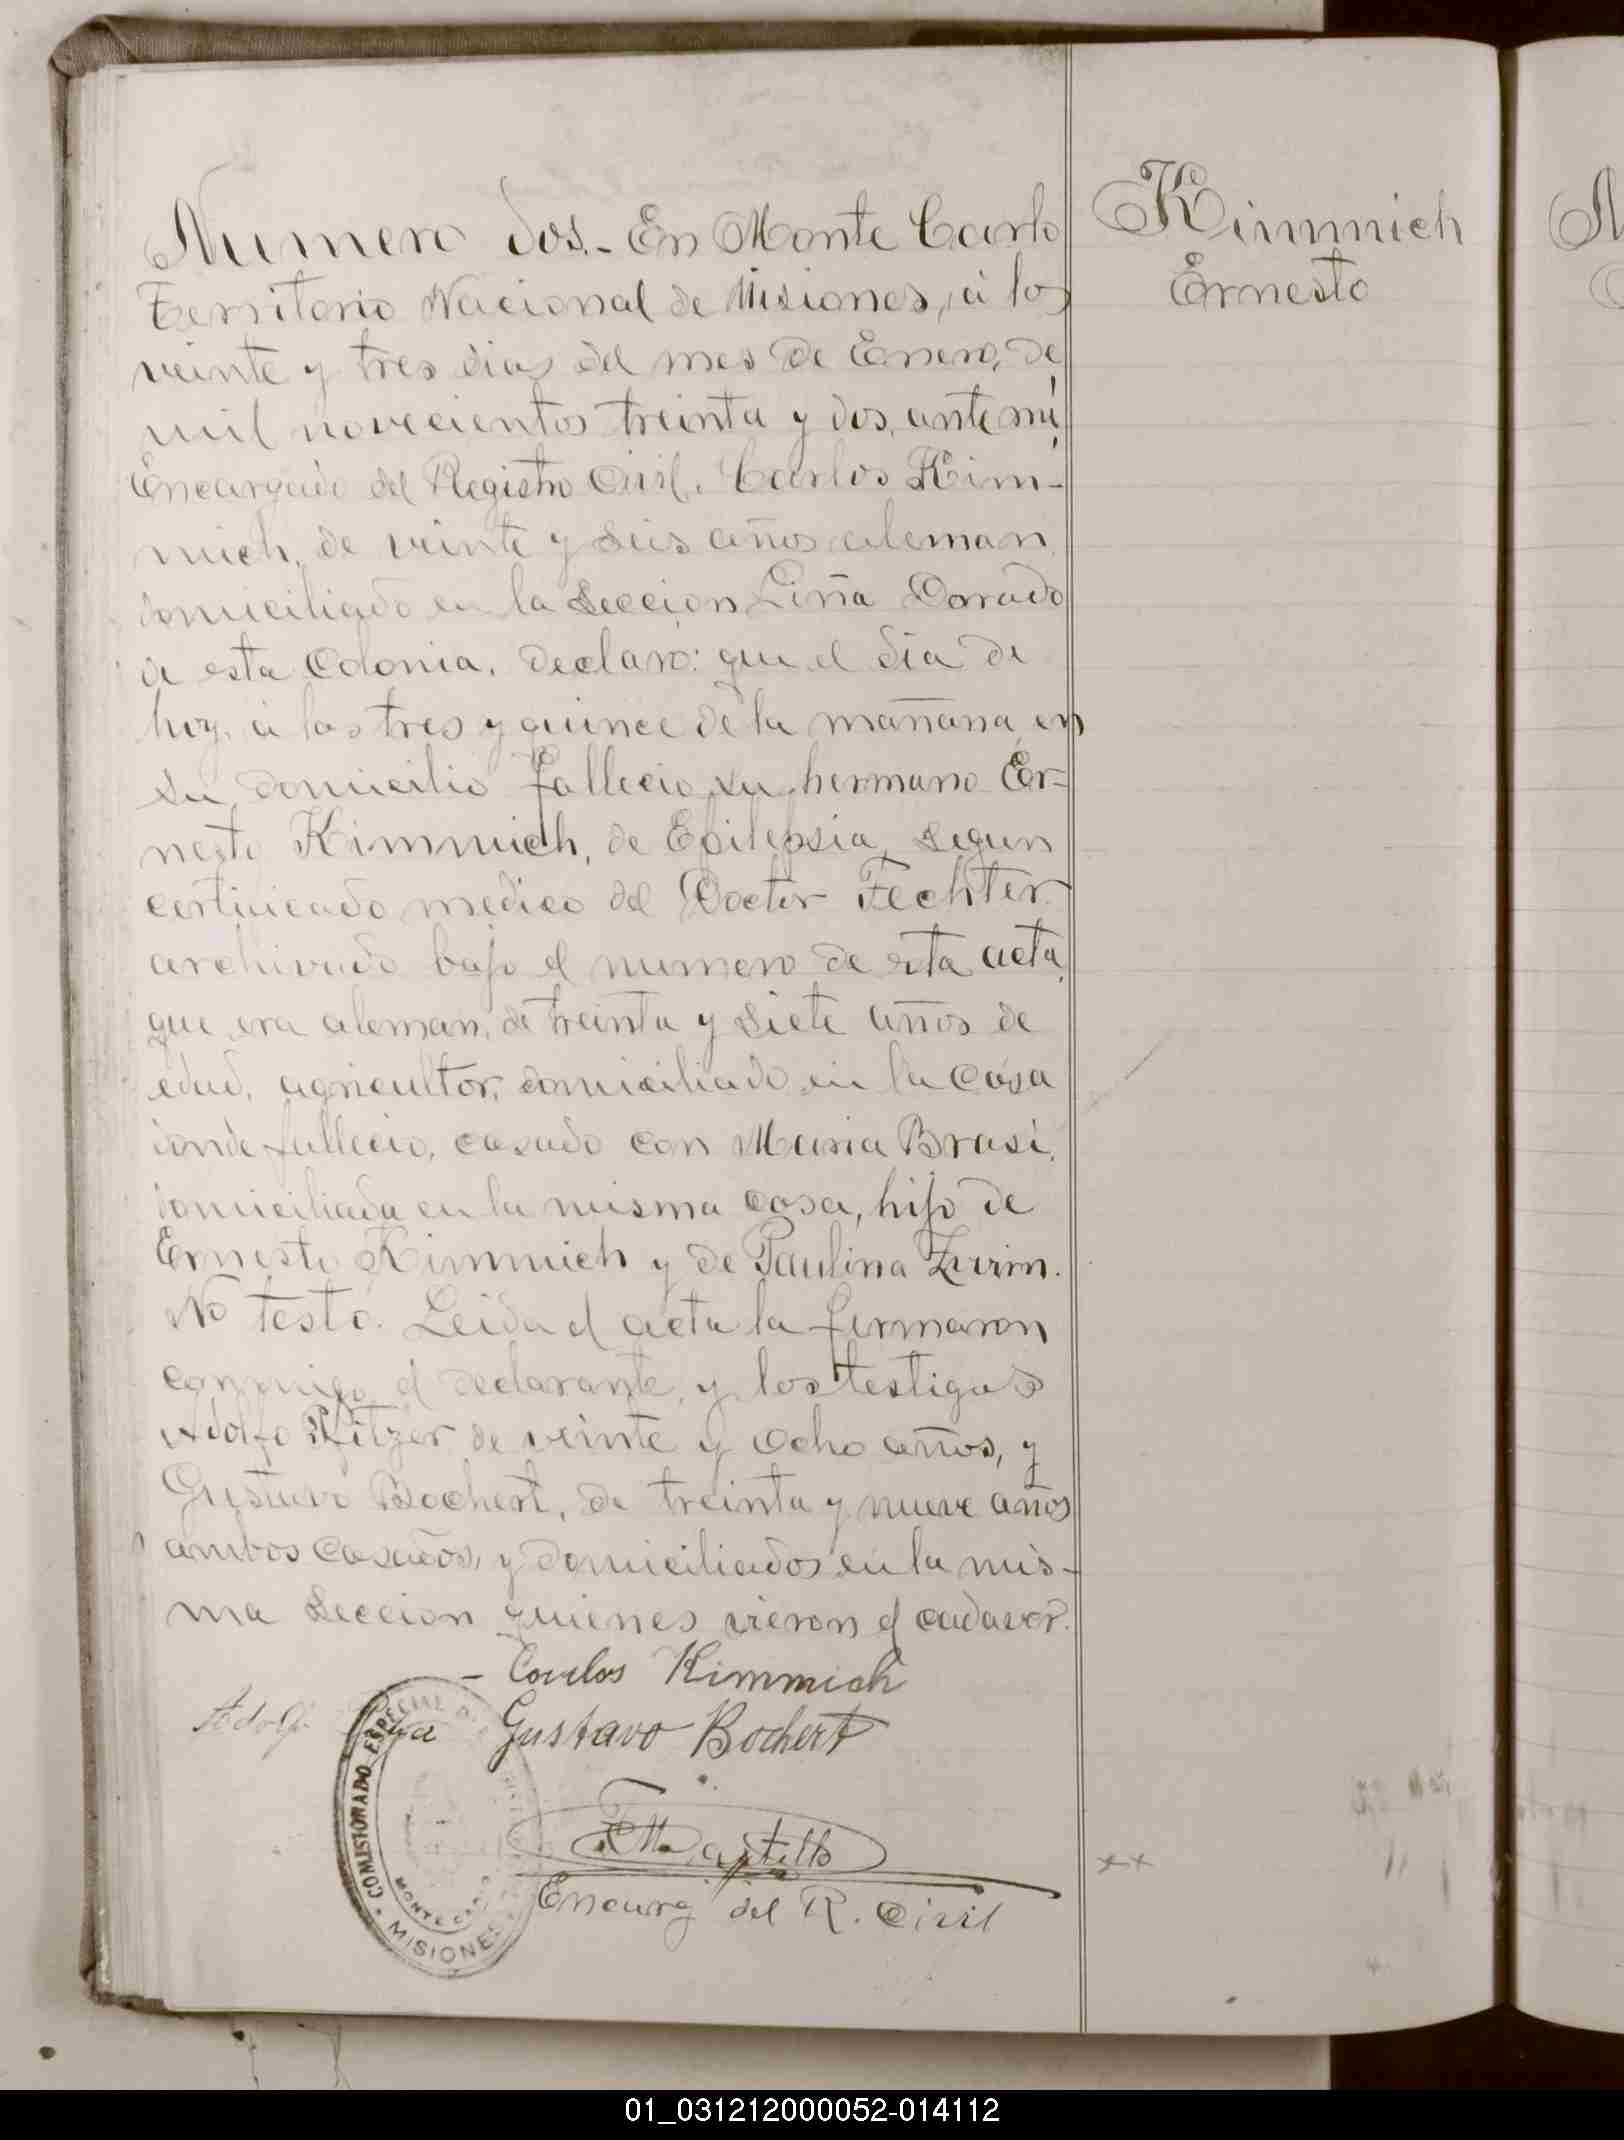 Numero dos.- En Monte Carlo
Territorio Nacional de Misiones, á los
veinte y tres dias del mes de Enero, de
mil novecientos treinta y dos, ante mí,
Encargado del Registro Civil, Carlos Kim-
mich, de veinte y seis años aleman,
domiciliado en la Seccion Liña Dorado
de esta Colonia, declaro: que el dia de
hoy, á las tres y quince de la mañana, en
su domicilio fallecio su hermano Er-
nesto Kimmich, de Epilepsia, segun
certificado medico del Doctor Fechter
archivado bajo el numero de esta acta,
que era aleman, de treinta y siete años de
edad, agricultor, domiciliado en la casa
donde fallecio, casado con Maria Brasi,
domiciliada en la misma casa, hijo de
Ernesto Kimmich y de Paulina
No testó. Leida el acta la firmaron
conmigo el declarante, y los testigos
Adolfo Ritzer de veinte y ocho años, y
Gustavo Bochert, de treinta y nueve años
ambos casados, y domiciliados en la mis-
ma Seccion quienes vieron el cadaver.
- Carlos Kimmich
Adolf
Gustavo Bochert
Encarg del R. Civil
COMISIONADO ESPECIAL
MONTE CARLO
MISIONES
Kimmich
Ernesto
01_031212000052-014112